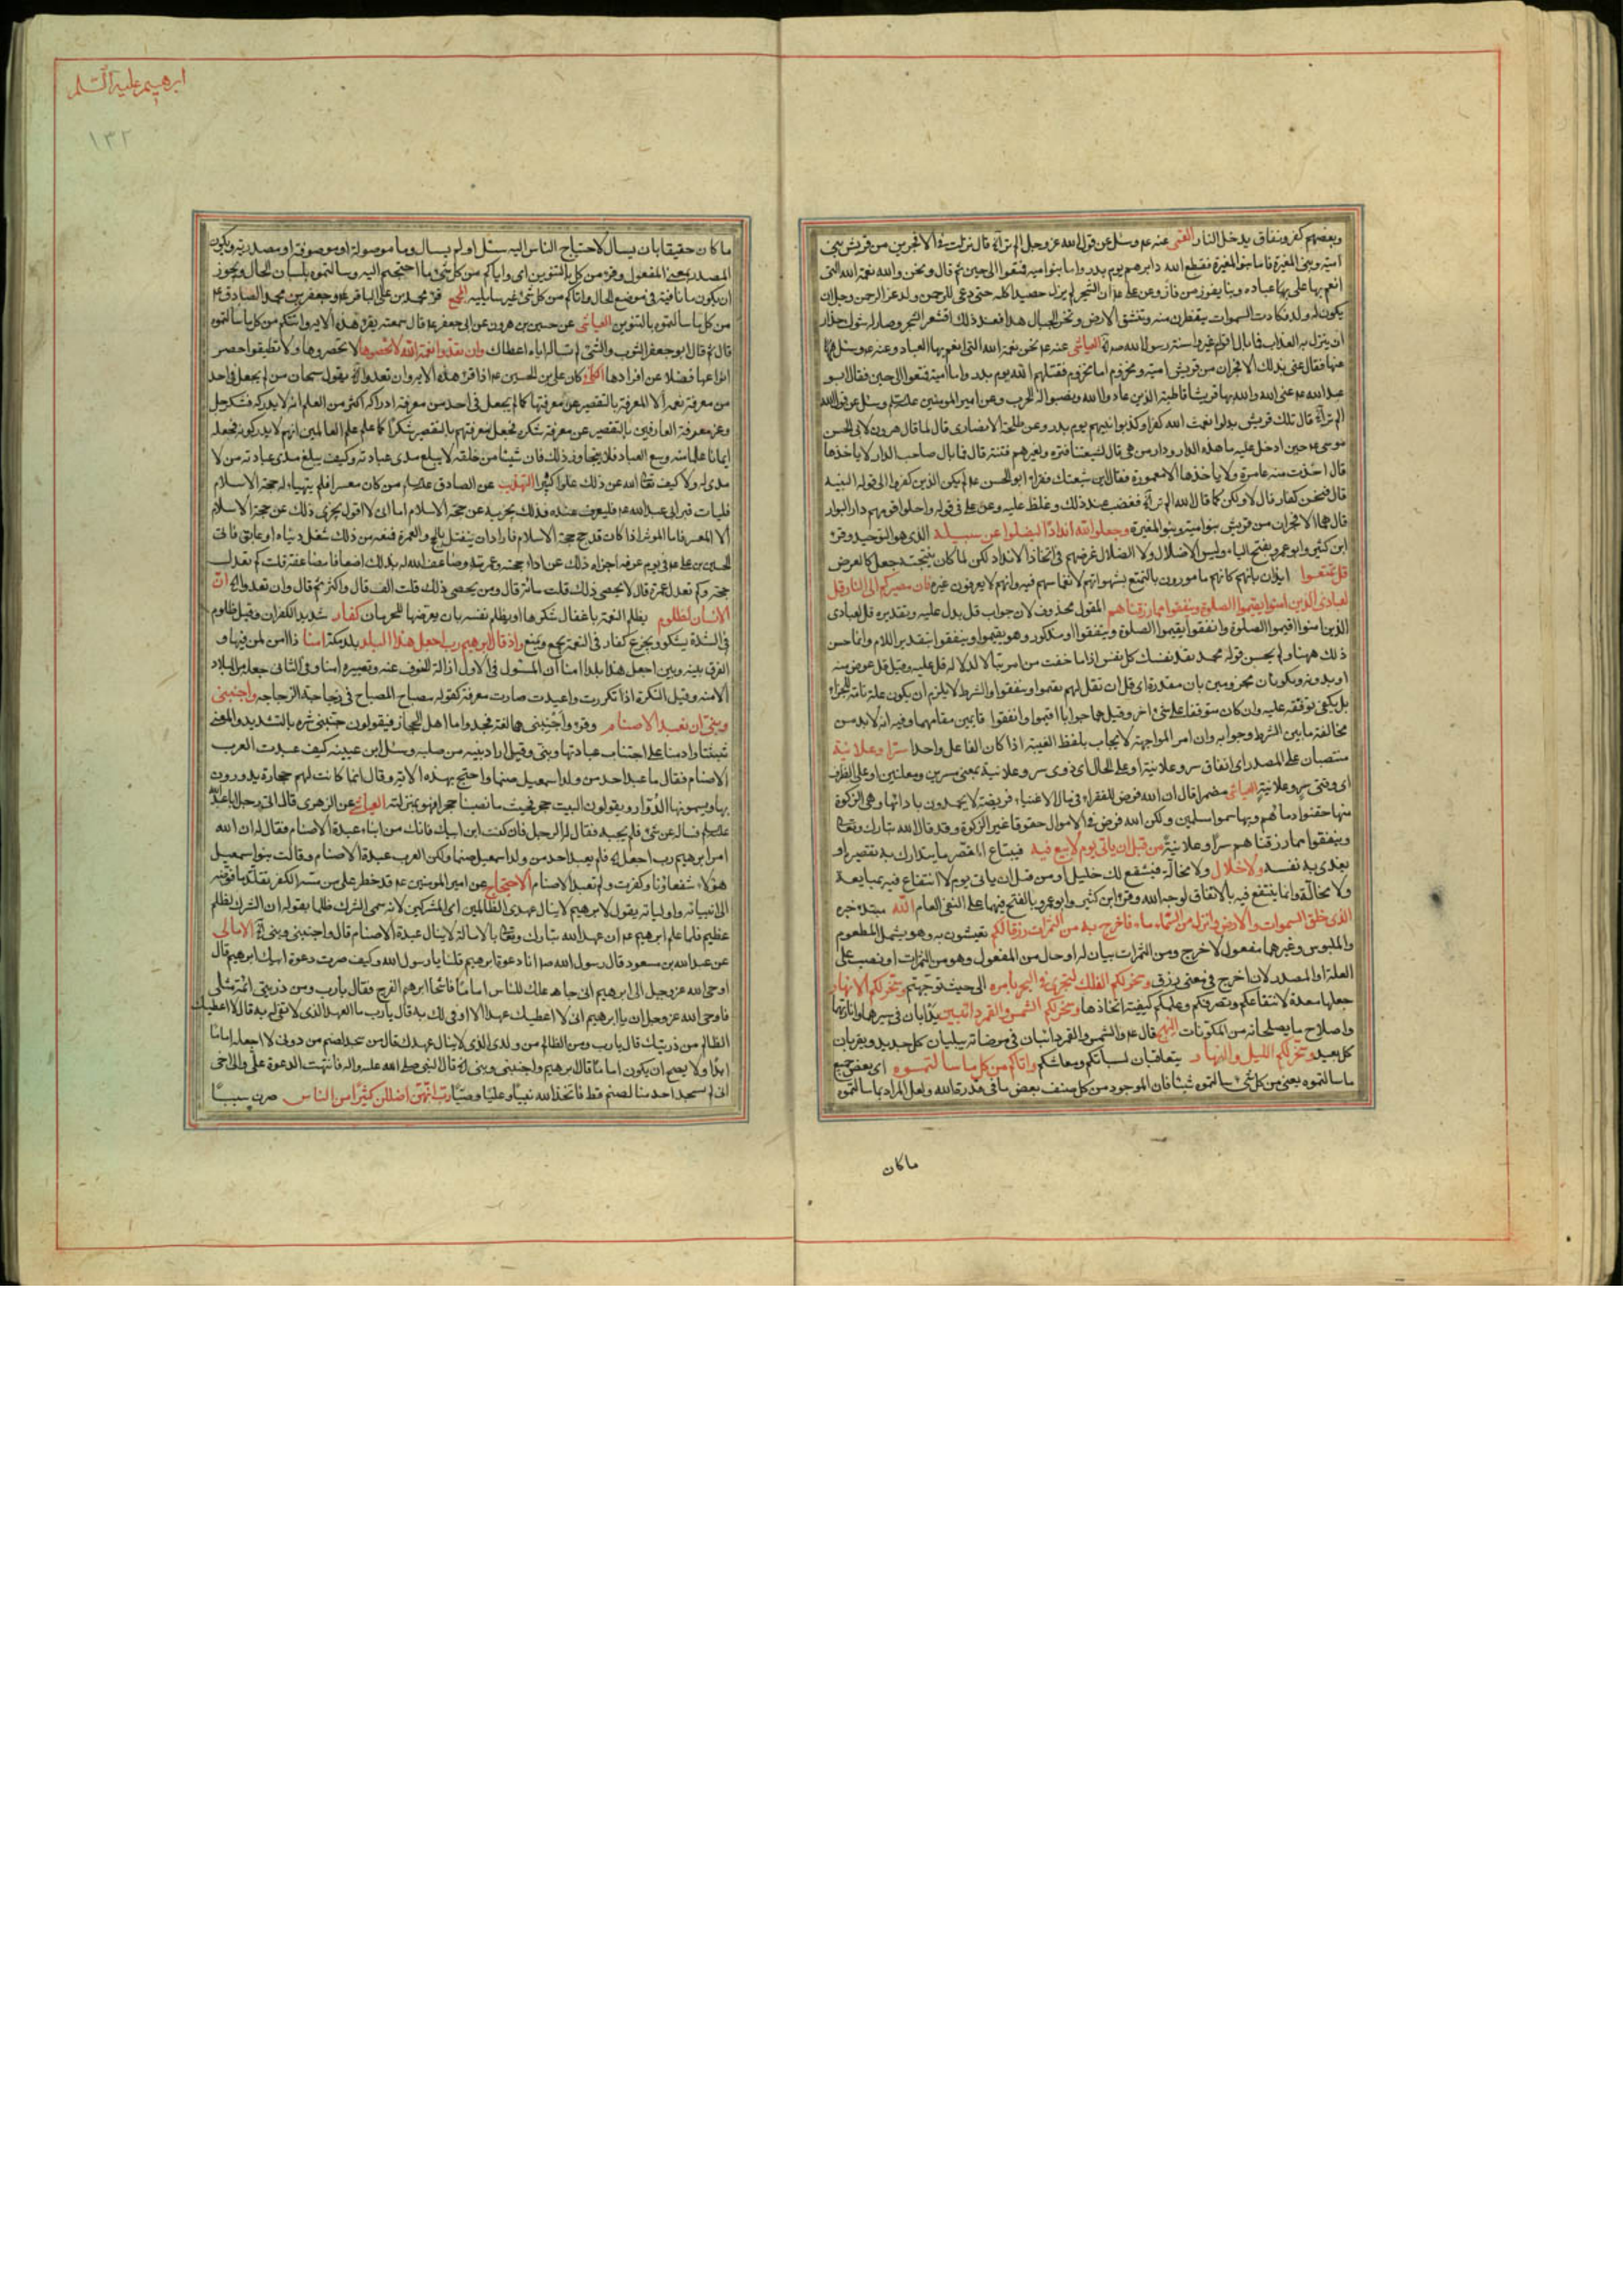 وبعضهم كفر ونفاق يدخل النار القمي عنه عم وسئل عن قول الله عز وجل الم تر الآية قال نزلت في الافجرين من قريش بني
امية وبني المغيرة فاما بنو المغيرة فقطع الله دابرهم يوم بدر واما بنو امية فمتعوا الى حين ثم قال ونحن والله نعمة الله التي
انعم بها على عباده وبنا يفوز من فاز وعن علي عم ان الشجر لم يزل حصيدا كله حتى دعي للرحمن ولد عز الرحمن وجل ان
يكون له ولد فكادت السموات يتفطرن منه وتنشق الارض وتخر الجبال هدا فعند ذلك اقشعر الشجر وصار له شوك حذار
ان ينزل به العذاب فما بال اقوام غيروا سنة رسول الله العياشي عنه عم نحن نعمة الله التي انعم بها العباد وعنه عم وسئل
عنها فقال عنى بذلك الافجران من قريش امية ومخزوم اما مخزوم فقتلهم الله يوم بدر واما امية فمتعوا الى حين فقال ابو
عبد الله عم عنى الله والله بها قريشا قاطبة الذين عادوا الله ونصبوا له الحرب وعن امير المومنين وسئل عن قول الله
الم تر الآية قال تلك قريش بدلوا نعمت الله كفرا وكذبوا نبيهم يوم بدر وعن الانصاري قال لما قال هرون لابي الحسن
موسى عم حين ادخل عليه ما هذه الدار ودار من هي قال لشيعتنا فترة ولغيرهم فتنة قال فما بال صاحب الدار لا ياخذها
قال اخذت منه عامرة ولا ياخذها الا معمورة فقال اين شيعتك فقراء ابو الحسن عم لم يكن الذين كفروا الى قوله البينة
قال فنحن كفار قال لا ولكن كما قال الله الم تر الآية فغضب عند ذلك وغلظ عليه وعن علي في قوله واحلوا قومهم دار البوار
قال هما الافجران من قريش بنو امية وبنو المغيرة وجعلوا لله اندادا ليضلوا عن سبيله الذي هو التوحيد وقرء
ابن كثير وابو عمرو بفتح الياء وليس الاضلال ولا الضلال غرضهم في اتخاذ الانداد لكن لما كان نتيجته جعل كالغرض
قل تمتعوا ايذان بانهم كانهم مامورون بالتمتع بشهواتهم لانغماسهم فيه وانهم لا يعرفون غيره فان مصيركم الى النار قل
لعبادي الذين امنوا يقيموا الصلوة وينفقوا مما رزقناهم المقول محذوف لان جواب قل يدل عليه وتقديره قل لعبادي
الذين امنوا اقيموا الصلوة وانفقوا يقيموا الصلوة وينفقوا او مذكور وهو يقيموا وينفقوا بتقدير اللام وانما حسن
ذلك ههنا ولم يحسن قوله محمد تفد نفسك كل نفس اذا ما خفت من امر تبالا لدلالة قل عليه وقيل قل عوض منه
او بدونه ويكونان مجزومين بان مقدرة اي قل ان تقل لهم يقيموا وينفقوا والشرط لا يلزم ان يكون علة تامة للجزاء
بل يكفي توقفه عليه وان كان متوقفا على شيء اخر وقيل هما جوابا اقيموا وانفقوا قايمين مقامهما وفيه انه لا بد من
مخالفة ما بين الشرط وجوابه وان امر المواجهة لا يجاب بلفظ الغيبة اذا كان الفاعل واحدا سرا وعلانية
منتصبان على المصدر اي انفاق سر وعلانية او على الحال اي ذوي سر وعلانية بمعنى مسرين ومعلنين او على الظرف
اي وقتي سر وعلانية العياشي مضمرا قال ان الله فرض للفقراء في مال الاغنياء فريضة لا يحمدون باداتها وهي الزكوة
بها حقنوا دمائهم وبها سموا مسلمين ولكن الله فرض في الاموال حقوقا غير الزكوة وقد قال الله تبارك وتعالى
وينفقوا مما رزقناهم سرا وعلانية من قبل ان ياتي يوم لا بيع فيه فيبتاع المقصر ما يتدارك به تقصيره او
يفدي به نفسه ولا خلال ولا مخالة فيشفع لك خليل او من قبل ان ياتي يوم لا انتفاع فيه بمبايعة
ولا مخالة وانما ينتفع فيه بالانفاق لوجه الله وقرء ابن كثير وابو عمرو بالفتح فيهما على النفي العام الله مبتدء خبره
الذي خلق السموات والارض وانزل من السماء ماء فاخرج به من الثمرات رزقا لكم تعيشون به وهو يشمل المطعوم
والملبوس وغيرهما مفعول لاخرج ومن الثمرات بيان له او حال من المفعول وهو من الثمرات او نصب على
العلة او المصدر لان اخرج في معنى رزق وسخر لكم الفلك لتجري في البحر بامره الى حيث توجهتم وسخر لكم الانهار
جعلها معدة لانتفاعكم وتصرفكم وعلمكم كيفية اتخاذها وسخر لكم الشمس والقمر دائبين يدأبان في سيرهما وانارتهما
واصلاح ما يصلحانه من المكونات النهج قال عم والشمس والقمر دائبان في مرضاته يبليان كل جديد ويقربان
كل بعيد وسخر لكم الليل والنهار يتعاقبان لسباتكم ومعاشكم واتاكم من كل ما سالتموه اي بعض جميع
ما سالتموه يعني من كل شيء سالتموه شيئا فان الموجود من كل صنف بعض ما في قدرة الله ولعل المراد بما سالتموه
ماكان
ابرهيم عليه السلم
١٣٢
ما كان حقيقا بان يسال لاحتياج الناس اليه سئل او لم يسال وما موصولة او موصوفة او مصدرية ويكون
المصدر بمعنى المفعول وقرء من كل بالتنوين اي واتاكم من كل شيء ما احتجتم اليه وسالتموه بلسان الحال ويجوز
ان يكون ما نافية في موضع الحال واتاكم من كل شيء غير سائليه المجمع قرء محمد بن علي الباقر عم وجعفر بن محمد الصادق عم
من كل ما سالتموه بالتنوين العياشي عن حسين بن هرون عن ابي جعفر عم قال سمعته يقرء هذه الاية واتيكم من كل ما سالتموه
قال ثم قال ابو جعفر الثوب والشيء لم تساله اياه اعطاك وان تعدوا نعمة الله لا تحصوها لا تحصروها ولا تطيقوا حصر
انواعها فضلا عن افرادها الكافي كان علي بن الحسين عم اذا قرء هذه الاية وان تعدوا الآية يقول سبحان من لم يجعل في احد
من معرفة نعمه الا المعرفة بالتقصير عن معرفتها كما لم يجعل في احد من معرفة ادراكه اكثر من العلم انه لا يدركه فشكر جل
وعز معرفة العارفين بالتقصير عن معرفة شكره فجعل معرفتهم بالتقصير شكرا كما علم علم العالمين انهم لا يدركونه فجعله
ايمانا علما منه وسع العباد فلا يتجاوز ذلك فان شيئا من خلقه لا يبلغ مدى عبادته وكيف يبلغ مدى عبادته من لا
مدى له ولا كيف تعالى الله عن ذلك علوا كبيرا التهذيب عن الصادق من كان معسرا فلم يتهياء له حجة الاسلام
فليات قبر ابي عبد الله عم فليعرف عنده فذلك يجزيه عن حجة الاسلام اما اني لا اقول يجزي ذلك عن حجة الاسلام
الا المعسر فاما الموسر اذا كان قد حج حجة الاسلام فاراد ان يتنفل بالحج والعمرة فمنعه من ذلك شغل دنياه او عايق فاتى
الحسين بن علي عم في يوم عرفة اجزاه ذلك عن اداء حجته وعمرته وضاعف الله له بذلك اضعافا مضاعفة قلت كم تعدل
حجة وكم تعدل عمرة قال لا يحصى ذلك قلت مائة قال ومن يحصي ذلك قلت الف قال واكثر ثم قال وان تعدوا الآية ان
الانسان لظلوم يظلم النعمة باغفال شكرها او يظلم نفسه بان يعرضها للحرمان كفار شديد الكفران وقيل ظلوم
في الشدة يشكو ويجزع كفار في النعمة يجمع ويمنع واذ قال ابرهيم رب اجعل هذا البلد بلد مكة امنا ذا امن لمن فيها و
الفرق بينه وبين اجعل هذا بلدا امنا ان المسئول في الاول ازالة الخوف عنه وتصييره امنا وفي الثاني جعله من البلاد
الامنة وقيل النكرة اذا تكررت واعيدت صارت معرفة كقوله مصباح المصباح في زجاجة الزجاجة واجنبني
وبني ان نعبد الاصنام وقرء واجنبني هما لغة نجد واما اهل الحجاز فيقولون جنبني شره بالتشديد والمعنى
ثبتنا وادمنا على اجتناب عبادتها وبني وقيل اراد بنيه من صلبه وسئل ابن عيينه كيف عبدت العرب
الاصنام فقال ما عبد احد من ولد اسمعيل صنما واحتج بهذه الاية وقال انما كانت لهم حجارة يدورون
بها ويسمونها الدوار ويقولون البيت حجر فحيث ما نصبنا حجرا فهو بمنزلته العياشي عن الزهري قال اتى رجل ابا عبد الله
فساله عن شيء فلم يجبه فقال له الرجل فان كنت ابن ابيك فانك من ابناء عبدة الاصنام فقال له ان الله
امر ابرهيم رب اجعل الآية فلم يعبد احد من ولد اسمعيل صنما ولكن العرب عبدة الاصنام وقالت بنو اسمعيل
هؤلاء شفعاؤنا وكفرت ولم تعبد الاصنام الاحتجاج عن امير المومنين عم قد خطر على من مسه الكفر تقلد ما فوضه
الى انبيائه واوليائه بقوله لابرهيم لا ينال عهدي الظالمين اي المشركين لانه سمى الشرك ظلما بقوله ان الشرك لظلم
عظيم فلما علم ابرهيم عم ان عهد الله تبارك وتعالى بالامامة لا ينال عبدة الاصنام قال واجنبني وبني الآية الامالي
عن عبد الله بن مسعود قال رسول الله انا دعوة ابرهيم قلنا يا رسول الله وكيف صرت دعوة ابيك ابرهيم قال
اوحى الله عز وجل الى ابرهيم اني جاعلك للناس اماما فاستخف ابرهم الفرح فقال يا رب ومن ذريتي ائمة مثلي
فاوحى الله عز وجل ان يا ابرهيم اني لا اعطيك عهدا لا اوفي لك به قال يا رب ما العهد الذي لا تفي لي به قال لا اعطيك
الظالم من ذريتك قال يا رب ومن الظالم من ولدي الذي لا ينال عهدك قال من سجد لصنم من دوني لا اجعله اماما
ابدا ولا يصح ان يكون اماما قال ابرهيم واجنبني وبني الآية قال النبي صلى الله عليه واله فانتهت الدعوة علي والى اخي
لم يسجد احد منا لصنم قط فاتخذني الله نبيا وعليا وصيا رب انهن اضللن كثيرا من الناس صرن سببا